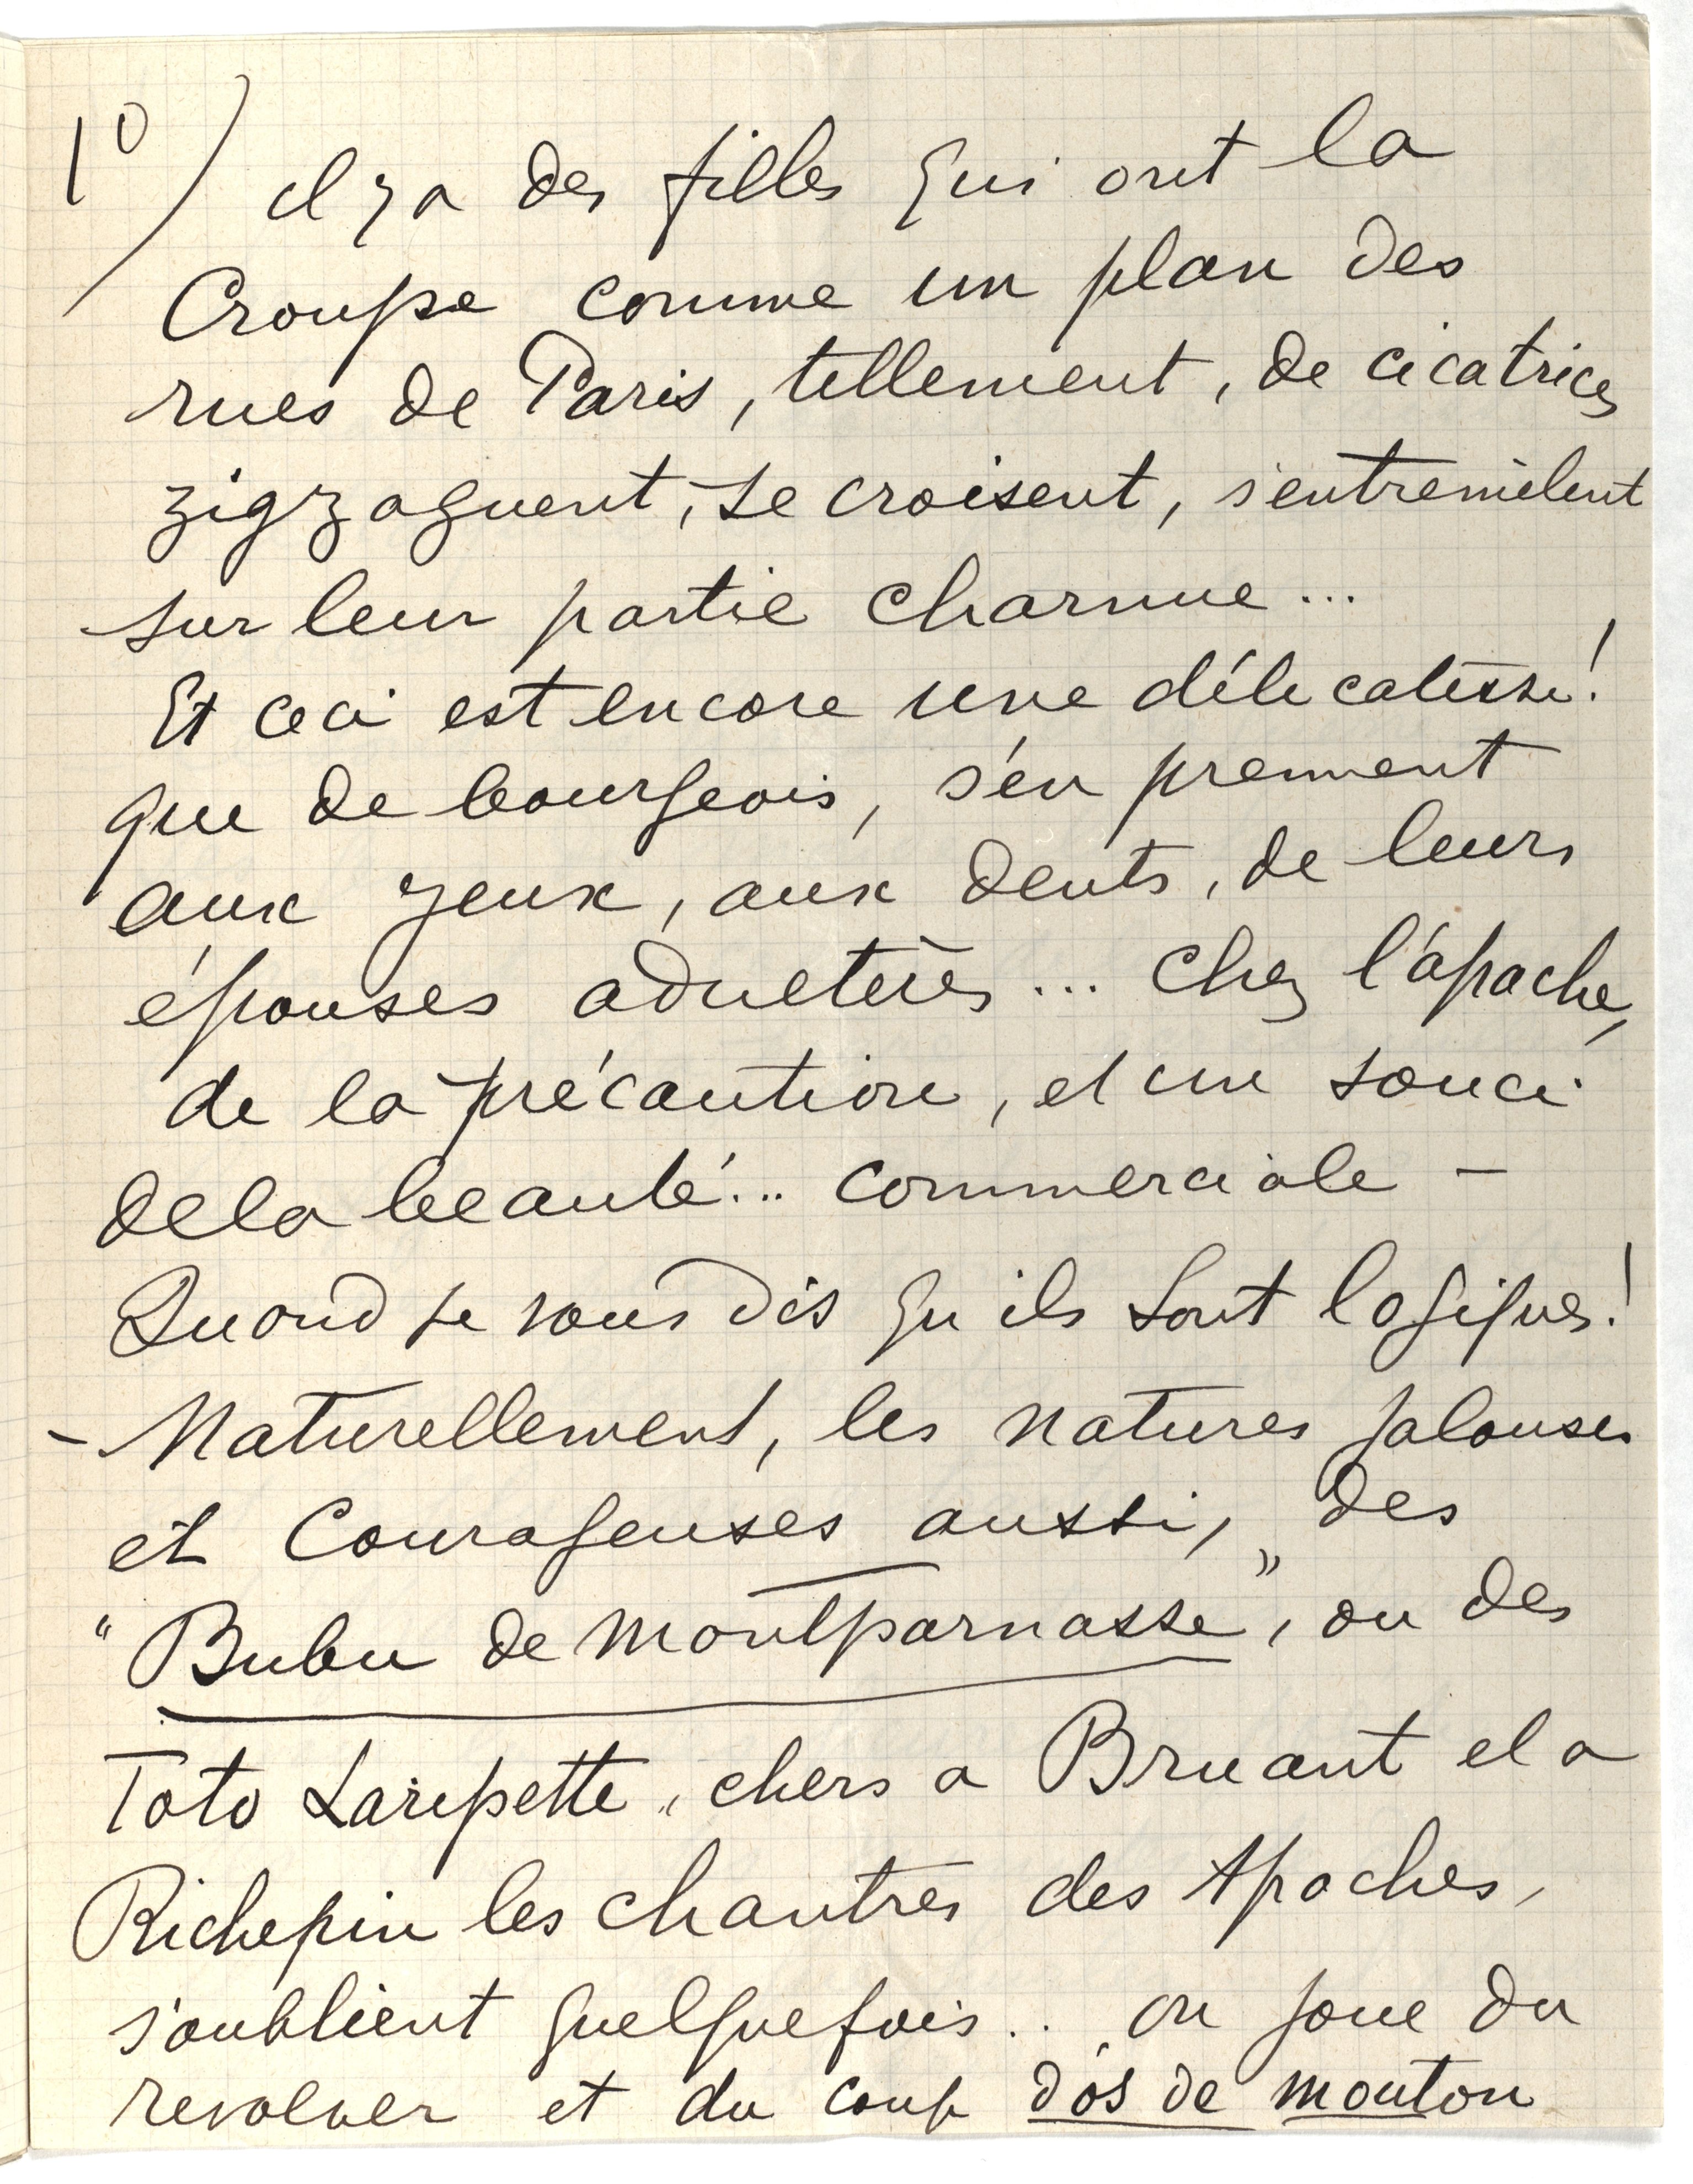 10) il y a des filles qui ont la
Croupe comme un plan des
rues de Paris, tellement, de cicatrices
zigzaguent, se croisent, s'entremêlent
sur leur partie charnue...
Et ceci est encore une délicatesse!
que de bourgeois, s'en prennent
aux yeux, aux dents, de leurs
épouses adultères... chez l'apache,
de la précaution, et un souci
de la beauté... commerciale -
Quand je vous dis qu'ils sont logiques!
- Naturellement, les natures jalouses
et Courageuses aussi, des
"Bubu de Montparnasse", ou des
Toto Laripette, chers a Bruant et a
Richepin les chantres des Apaches,
s'oublient quelquefois.. on joue du
revolver et du coup d'os de mouton